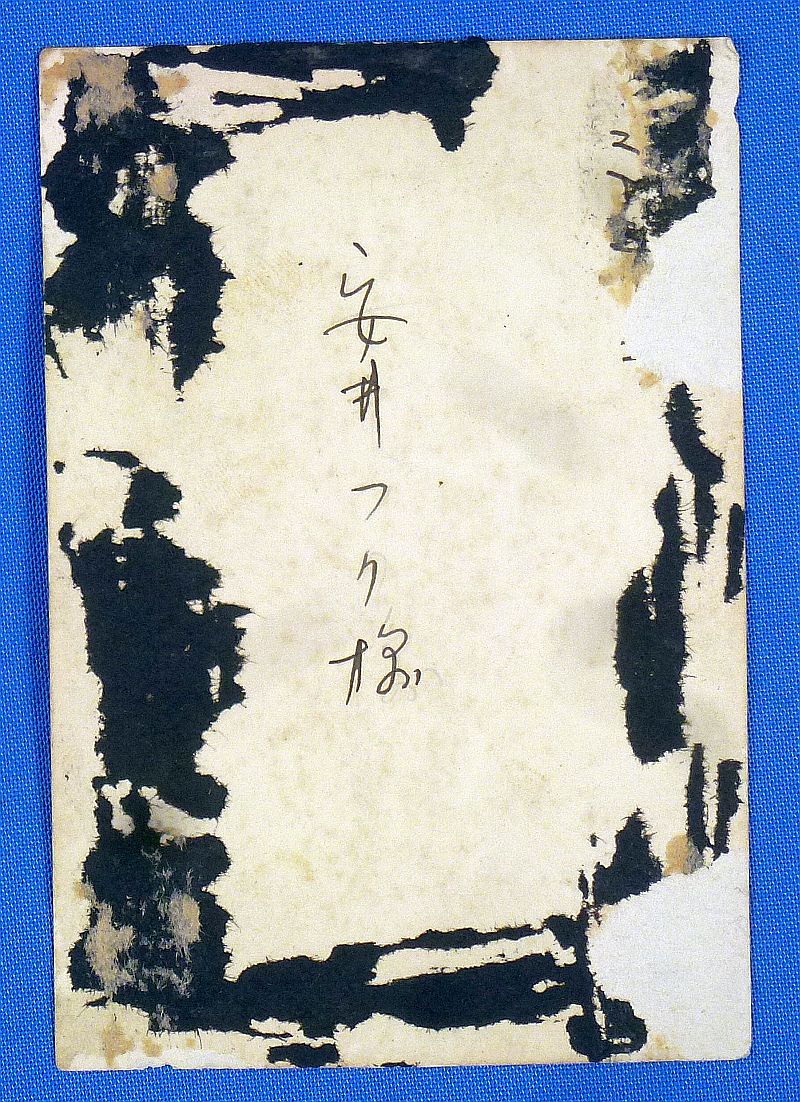 安井フク様